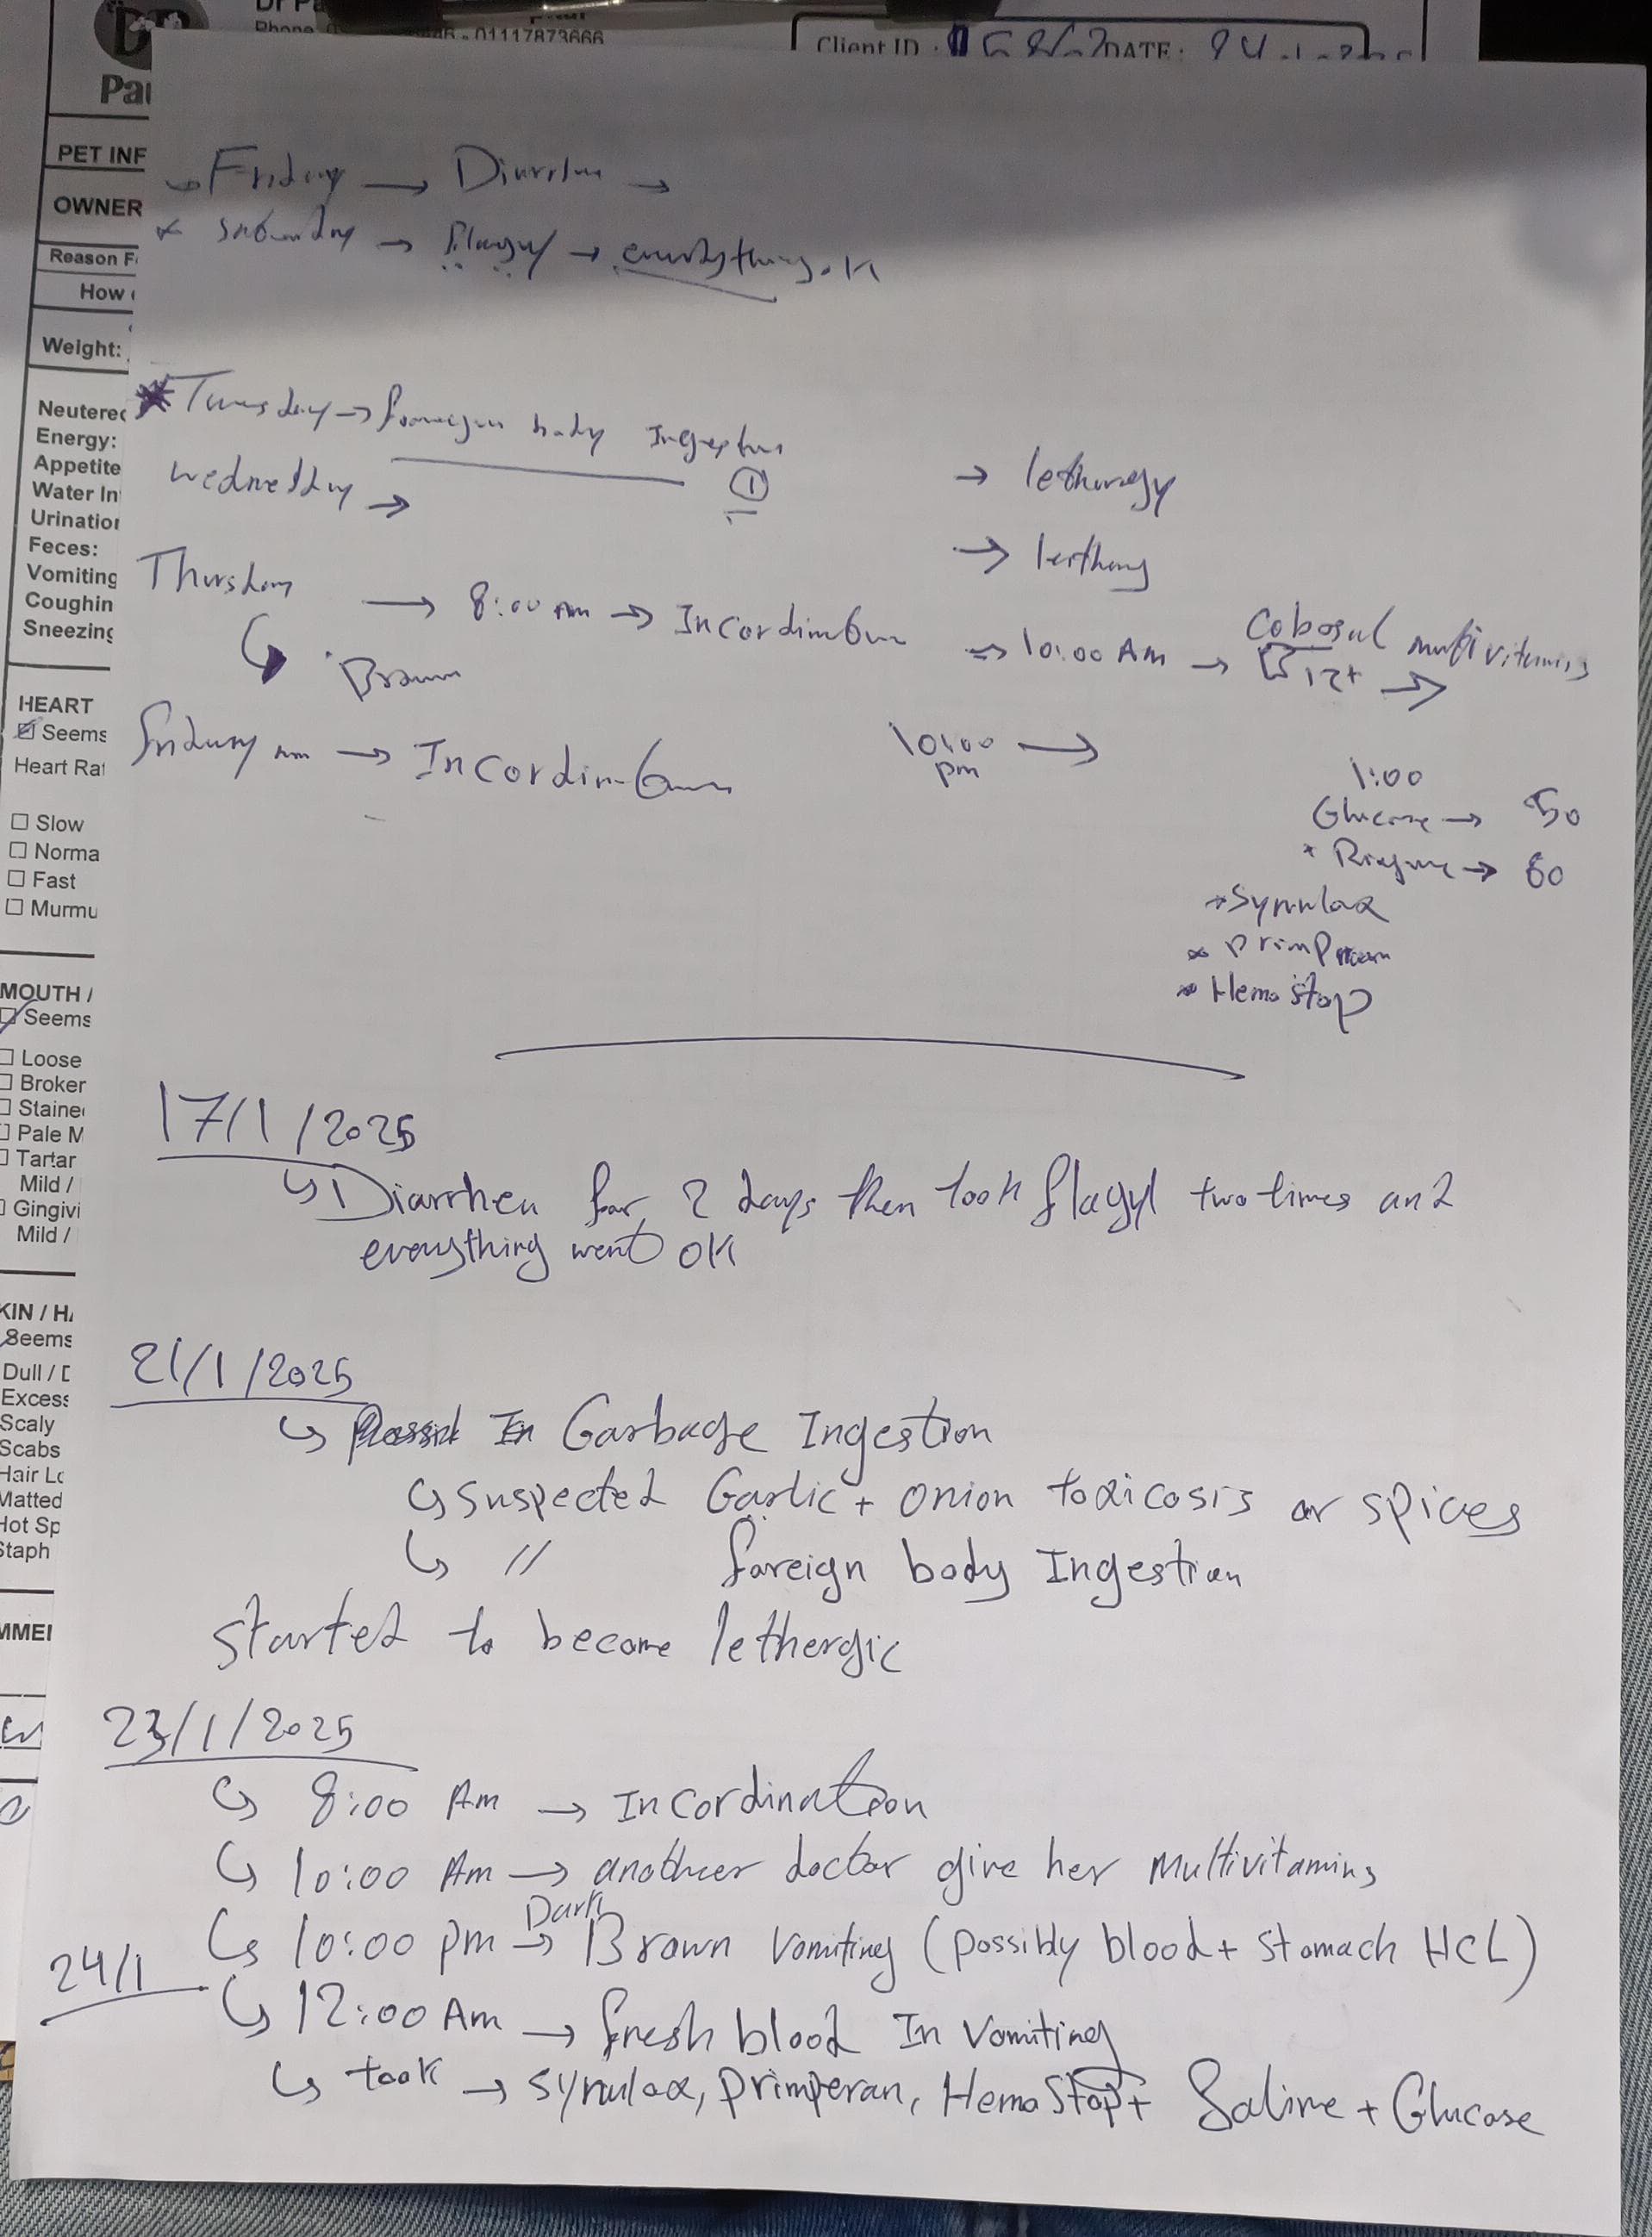 Dr Pa
Phone 0 46 - 01117873666
Client ID : DATE: 24
Pa
PET INF
OWNER
Reason F
How
Weight:
Neutered
Energy:
Appetite
Water In
Urination
Feces:
Vomiting
Coughin
Sneezing
HEART
Seems
Heart Rat
Slow
Norma
Fast
Murmu
MOUTH /
Seems
Loose
Broker
Staine
Pale M
Tartar
Mild /
Gingivi
Mild /
KIN / HA
Seems
Dull / D
Excess
Scaly
Scabs
Hair Lo
Matted
Hot Sp
Staph
MMEN
↳ Friday → Diarrhea →
* Saturday → Flagyl → everything ok
* Tuesday → foreign body Ingestion
Wednesday → ① → lethargy
→ lethargy
Thursday → 8:00 Am → Incordination → 10:00 Am → Cobasal multivitamins
B12+ →
↳ Brown
friday Am → Incordination 10:00 pm →
1:00
Glucose → 50
* → 60
* Synulox
* Primperan
* Hemostop
17/1/2025
↳ Diarrhea for 2 days then took flagyl two times and
everything went ok
21/1/2025
↳ Garbage Ingestion
↳ suspected Garlic + onion toxicosis or spices
↳ // foreign body Ingestion
started to become lethergic
23/1/2025
↳ 8:00 Am → Incordination
↳ 10:00 Am → another doctor give her multivitamins
↳ 10:00 pm → Dark Brown vomiting (possibly blood + stomach HCL)
24/1 ↳ 12:00 Am → fresh blood In vomiting
↳ took → synulox, primperan, Hemostop + Saline + Glucose